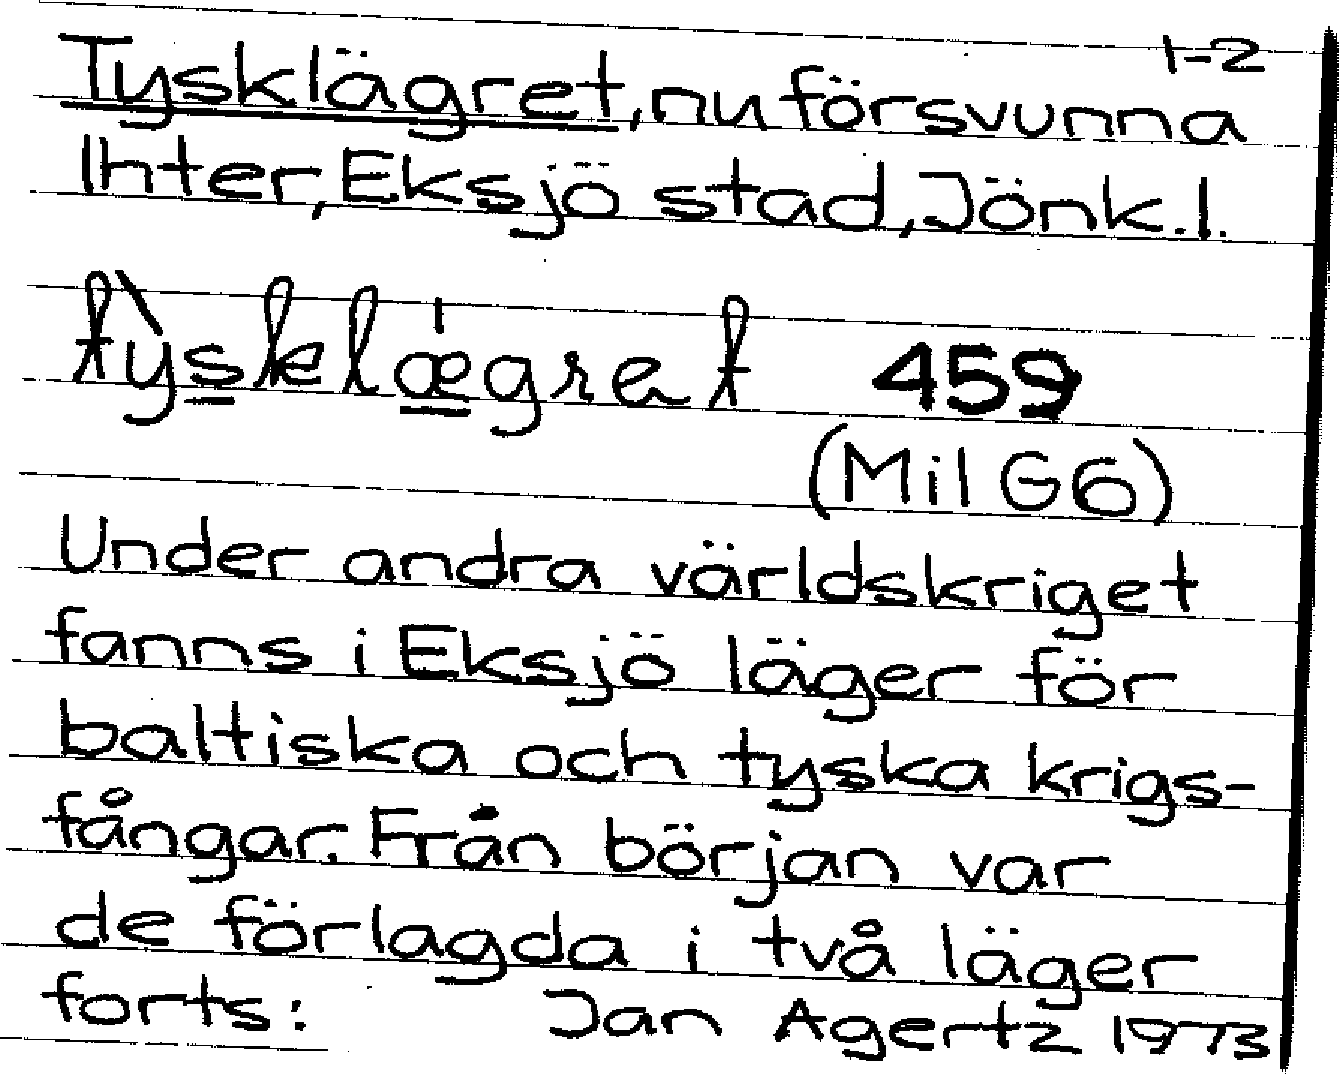 1-2
Tysklägret, nu försvunna
Inter, Eksjö stad, Jönk. l.
tỳsklæ̍gret 459
(Mil G6)
Under andra världskriget
fanns i Eksjö läger för
baltiska och tyska krigs-
fångar. Från början var
de förlagda i två läger
forts: Jan Agertz 1973